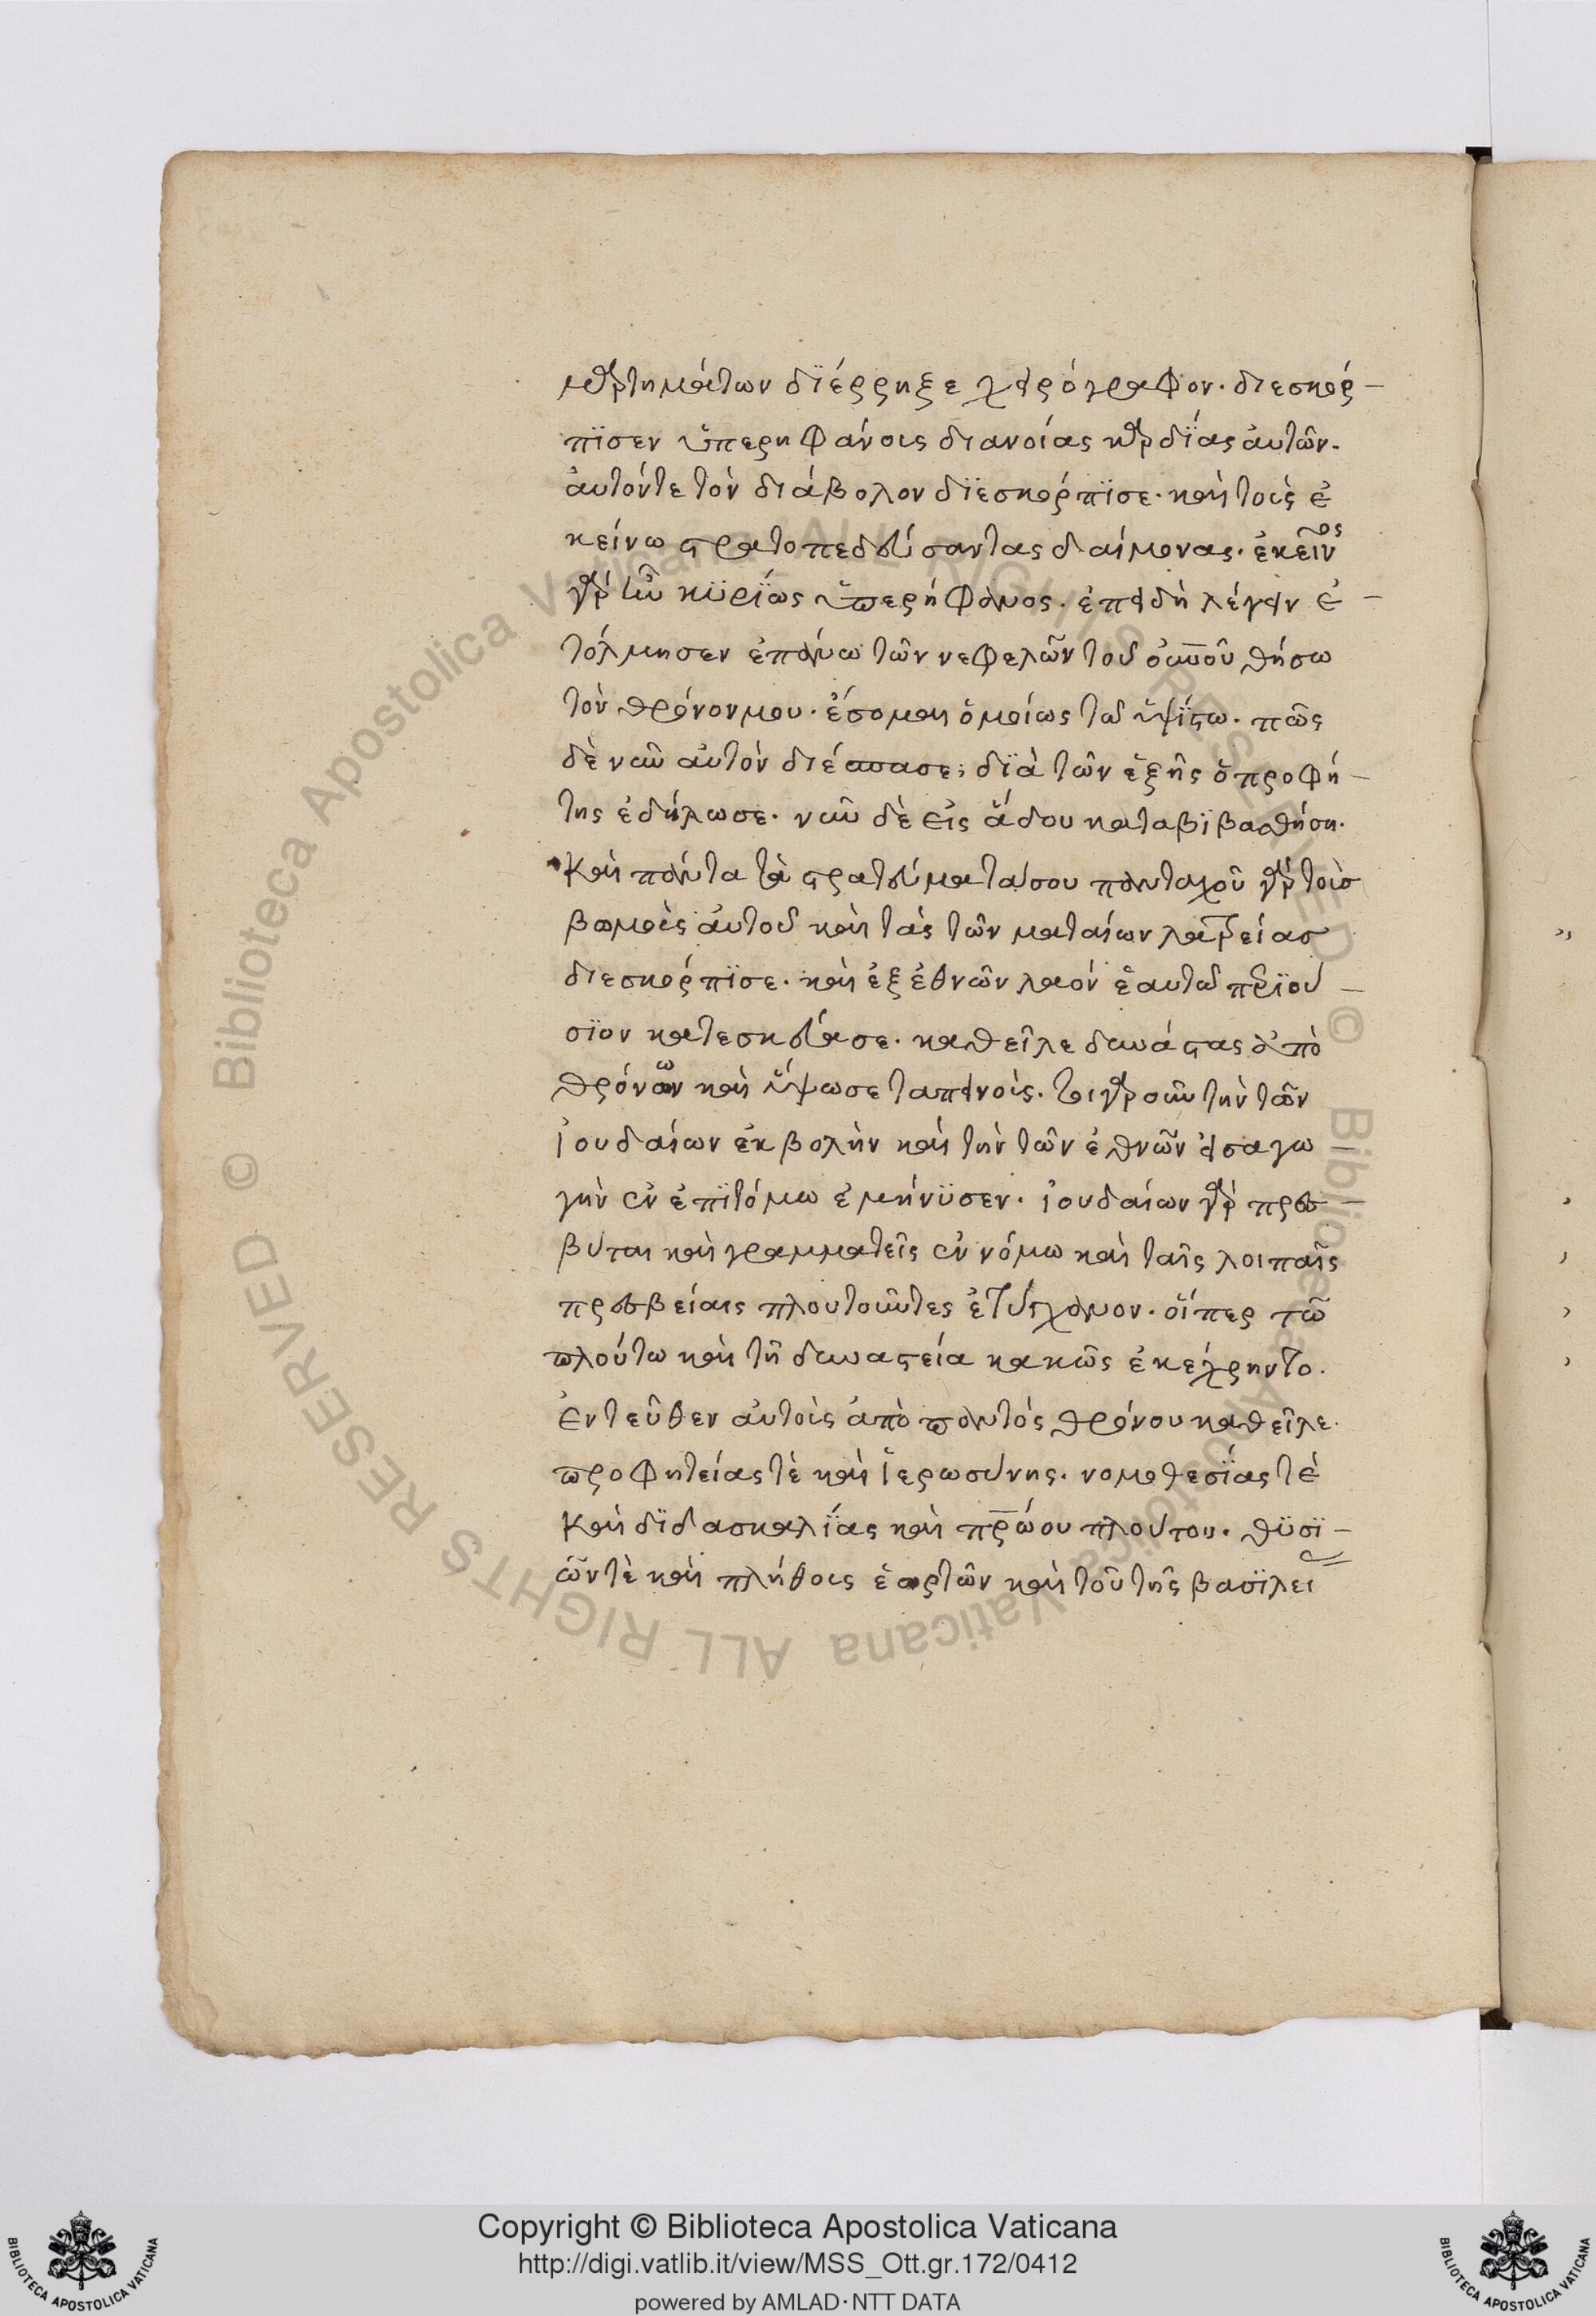 μαρτημάτων διέρρηξε χειρόγραφον. διεσκόρ-
πϊσεν ὑπερηφάνους διανοίας καρδΐας ἀυτῶν.
ἀυτόντε τὸν διάβολον δϊεσκόρπϊσε. καὶ τοὺς ἐ
κείνω στρατοπεδεύσαντας δαίμονας. ἐκεῖνος
γὰρ ἦν κϋρΐως ὑπερήφανος. ἐπειδὴ λέγειν ἐ-
τόλμησεν ἐπάνω τῶν νεφελῶν τοῦ οὐνοῦ θήσω
τὸν θρόνον μου. ἔσομαι ὁμοίως τῶ ὑψΐστω. πῶς
δὲ νῦν αὐτὸν διέσπασε; δϊὰ τῶν ἑξῆς ὁ προφή-
της ἐδήλωσε. νῦν δὲ εἰς ἅδου καταβϊβασθήση.
Καὶ πάντα τὰ στρατεύματά σου πανταχοῦ γὰρ τοὺσ
βωμοὺς ἀυτοῦ καὶ τὰς τῶν ματαίων λατρείασ
διεσκόρπϊσε. καὶ ἐξ ἐθνῶν λαὸν ἑαυτῶ περϊού-
σϊον κατεσκεύασε. καθεῖλε δυνάστας ἀπὸ
θρόνων καὶ ὕψωσε ταπεινούς. τι γὰρ οὖν τὴν τῶν
ἰουδαίων ἐκβολὴν καὶ τὴν τῶν ἐθνῶν εἰσαγω-
γὴν ἐν ἐπϊτόμω ἐμήνϋσεν. ἰουδαίων γὰρ πρεσ-
βύται καὶ γραμματεῖς ἐν νόμω καὶ ταῖς λοιπαῖς
πρεσβείαις πλουτοῦντες ἐτύγχανον. οἵπερ τῶ
πλούτω καὶ τῆ δυναστεία κακῶς ἐκέχρηντο.
Ἐντεῦθεν ἀυτοὺς ἀπὸ παντὸς θρόνου καθεῖλε.
προφητείας τὲ καὶ ἱερωσύνης. νομοθεσΐας τὲ
Καὶ δϊδασκαλΐας καὶ πρώου πλούτου. θϋσϊ-
ῶν τὲ καὶ πλήθους ἑορτῶν καὶ τοῦ τῆς βασϊλει
Copyright © Biblioteca Apostolica Vaticana
http://digi.vatlib.it/view/MSS_Ott.gr.172/0412
powered by AMLAD·NTT DATA